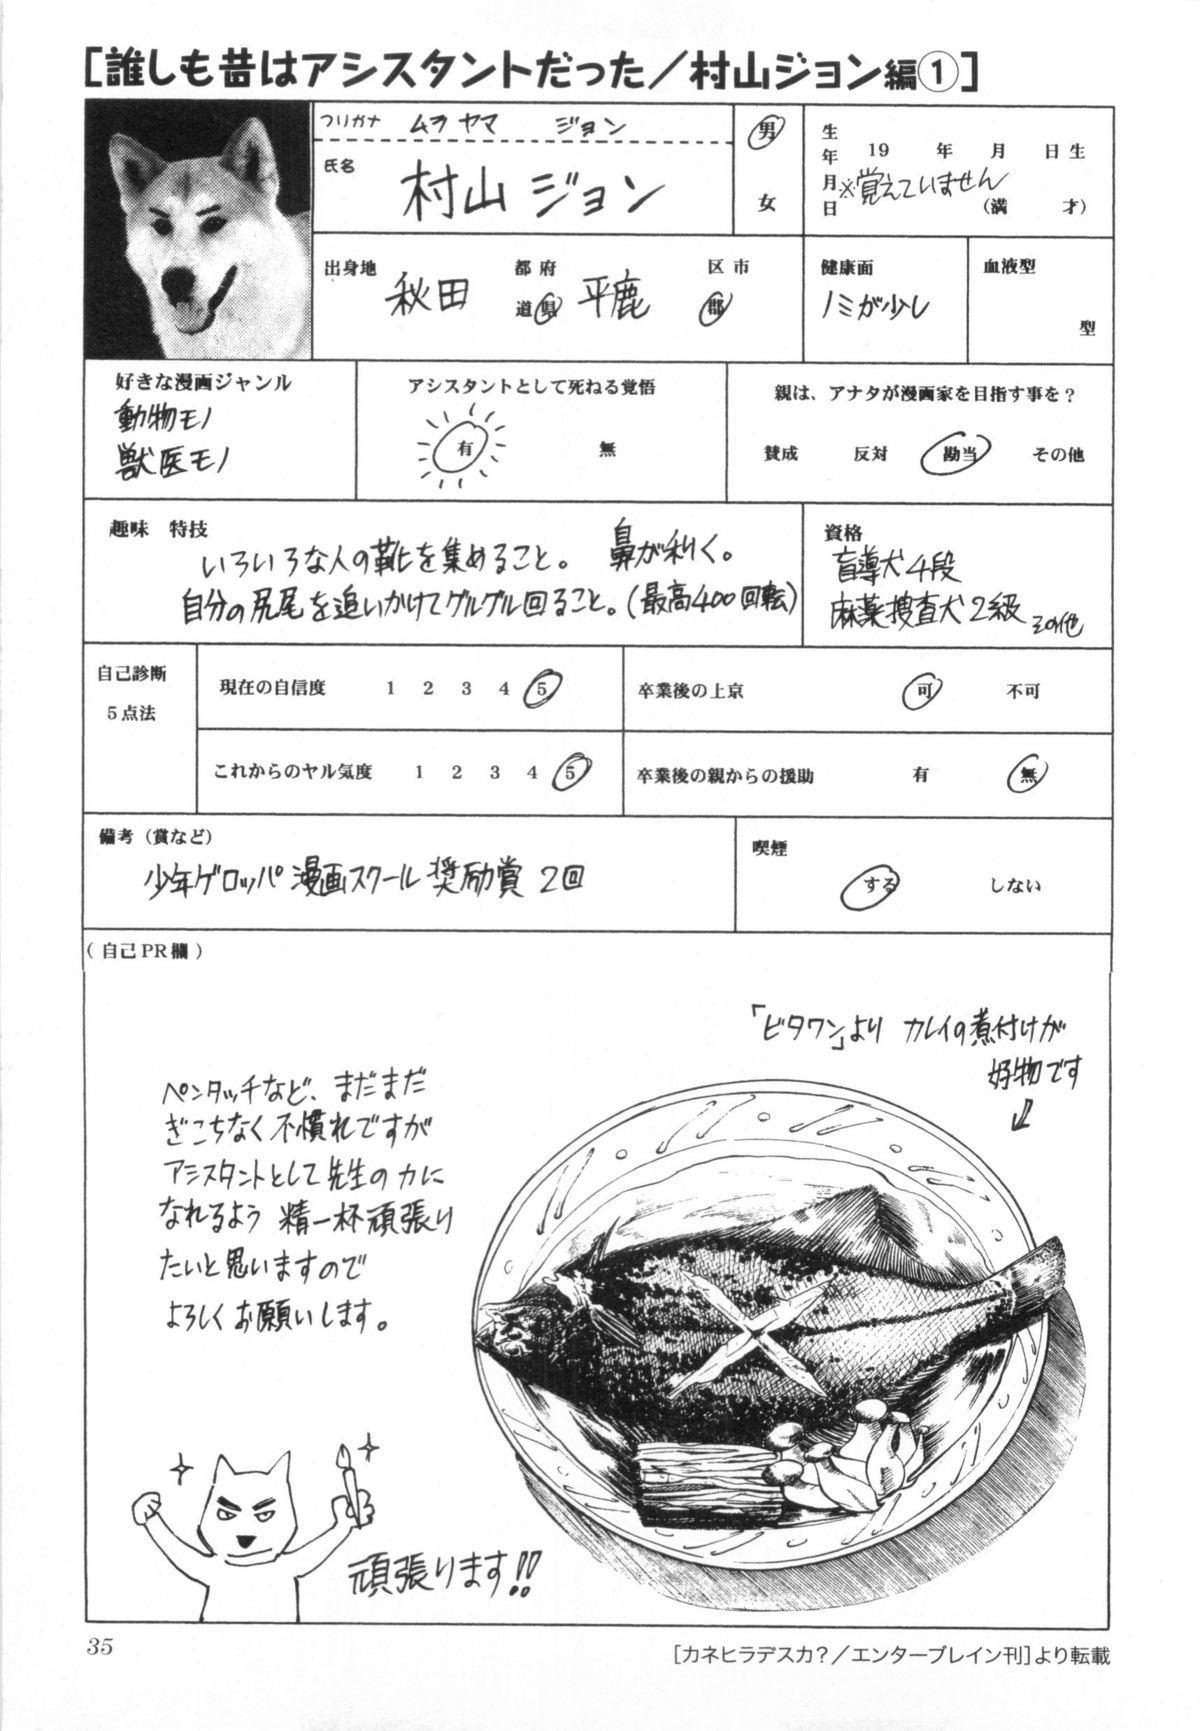 [誰しも昔はアシスタントだった/村山ジョン編①]
フリガナ ムラヤマ ジョン
氏名 村山 ジョン
男
女
生年月日 19 年 月 日生
※覚えていません
(満 才)
出身地 秋田 都府道県 平鹿 区市郡
健康面
ノミが少し
血液型
型
好きな漫画ジャンル
動物モノ
獣医モノ
アシスタントとして死ねる覚悟
有 無
親は、アナタが漫画家を目指す事を?
賛成 反対 勘当 その他
趣味 特技
いろいろな人の靴を集めること。 鼻が利く。
自分の尻尾を追いかけてグルグル回ること。(最高400回転)
資格
盲導犬4段
麻薬捜査犬2級 その他
自己診断
5点法
現在の自信度 1 2 3 4 5
卒業後の上京 可 不可
これからのヤル気度 1 2 3 4 5
卒業後の親からの援助 有 無
備考(賞など)
少年ゲロッパ漫画スクール奨励賞 2回
喫煙
する しない
(自己PR欄)
「ビタワン」より カレイの煮付けが
好物です
ペンタッチなど、まだまだ
ぎこちなく不慣れですが
アシスタントとして先生の力に
なれるよう 精一杯頑張り
たいと思いますので
よろしくお願いします。
頑張ります!!
35
[カネヒラデスカ?/エンターブレイン刊]より転載